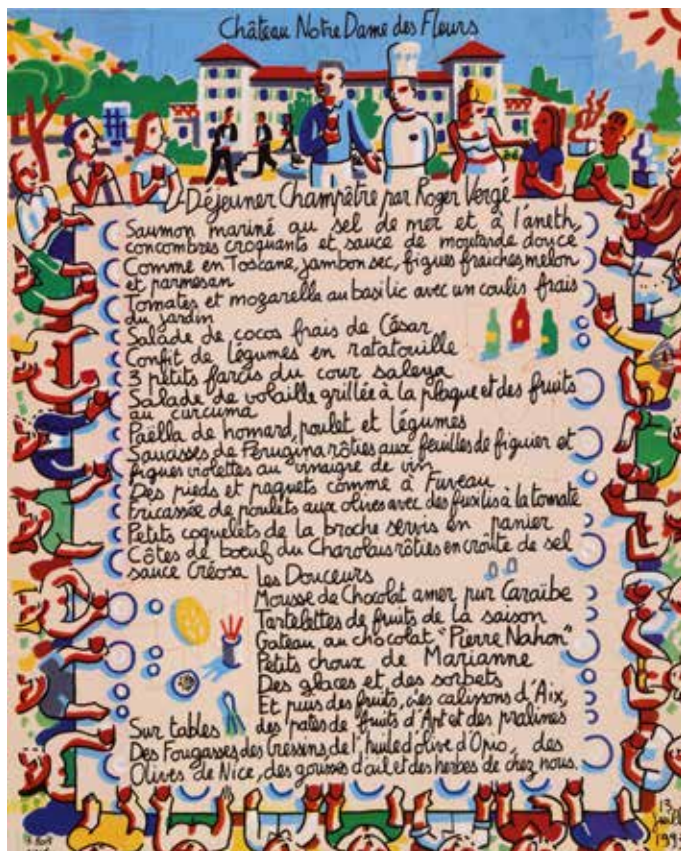 Château Notre Dame des Fleurs
Déjeuner Champêtre par Roger Vergé
Saumon mariné au sel de mer et à l'aneth,
concombres croquants et sauce de moutarde douce
Comme en Toscane, jambon sec, figues fraiches, melon
et parmesan
Tomates et mozarella au basilic avec un coulis frais
du jardin
Salade de cocos frais de César
Confit de légumes en ratatouille
3 petits farcis du cour saleya
Salade de volaille grillée à la plaque et des fruits
au curcuma
Paëlla de homard, poulet et légumes
Saucisses de Perugina rôties aux feuilles de figuier et
figues violettes au vinaigre de vin
Des pieds et paquets comme à Fuveau
Fricassée de poulets aux olives avec des fusilis à la tomate
Petits coquelets de la broche servis en panier
Côtes de bœuf du Charolais rôties en croûte de sel
sauce Créosa
Les Douceurs
Mousse de Chocolat amer pur Caraïbe
Tartelettes de fruits de la saison
Gateau au chocolat "Pierre Nahon"
Petits choux de Marianne
Des glaces et des sorbets
Et puis des fruits, des calissons d'Aix,
des pates de fruits d'Apt et des pralines
Sur tables
Des Fougasses, des Gressens de l'huile d'olive d'Opio, des
Olives de Nice, des gousses d'ail et des herbes de chez nous.
13